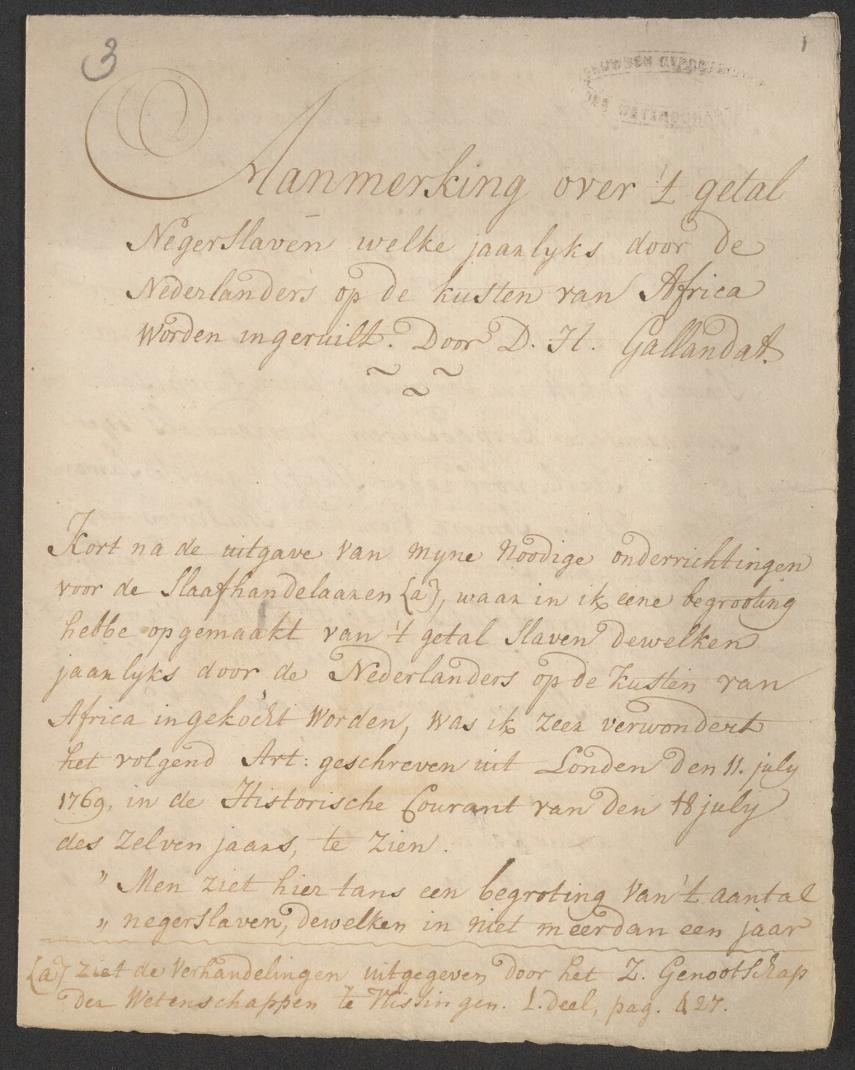 3
1
Aanmerking over 't getal
Negerslaven welke jaarlyks door de
Nederlanders op de kusten van Africa
worden ingeruilt. Door D. H. Gallandat.
Kort na de uitgave van myne Noodige onderrichtingen
voor de Slaafhandelaaren [a], waar in ik eene begrooting
hebbe opgemaakt van 't getal Slaven dewelken
jaarlyks door de Nederlanders op de Kusten van
Africa ingekocht worden, was ik zeer verwondert
het volgend Art: geschreven uit Londen den 11. july
1769. in de Historische Courant van den 18 july
des zelven jaars, te zien.
" Men ziet hier tans een begroting van 't aantal
" negerslaven, dewelken in niet meerdan een jaar
[a] ziet de Verhandelingen uitgegeven door het Z. Genootschap
der Wetenschappen te Vlissingen. 1. deel, pag. 427.